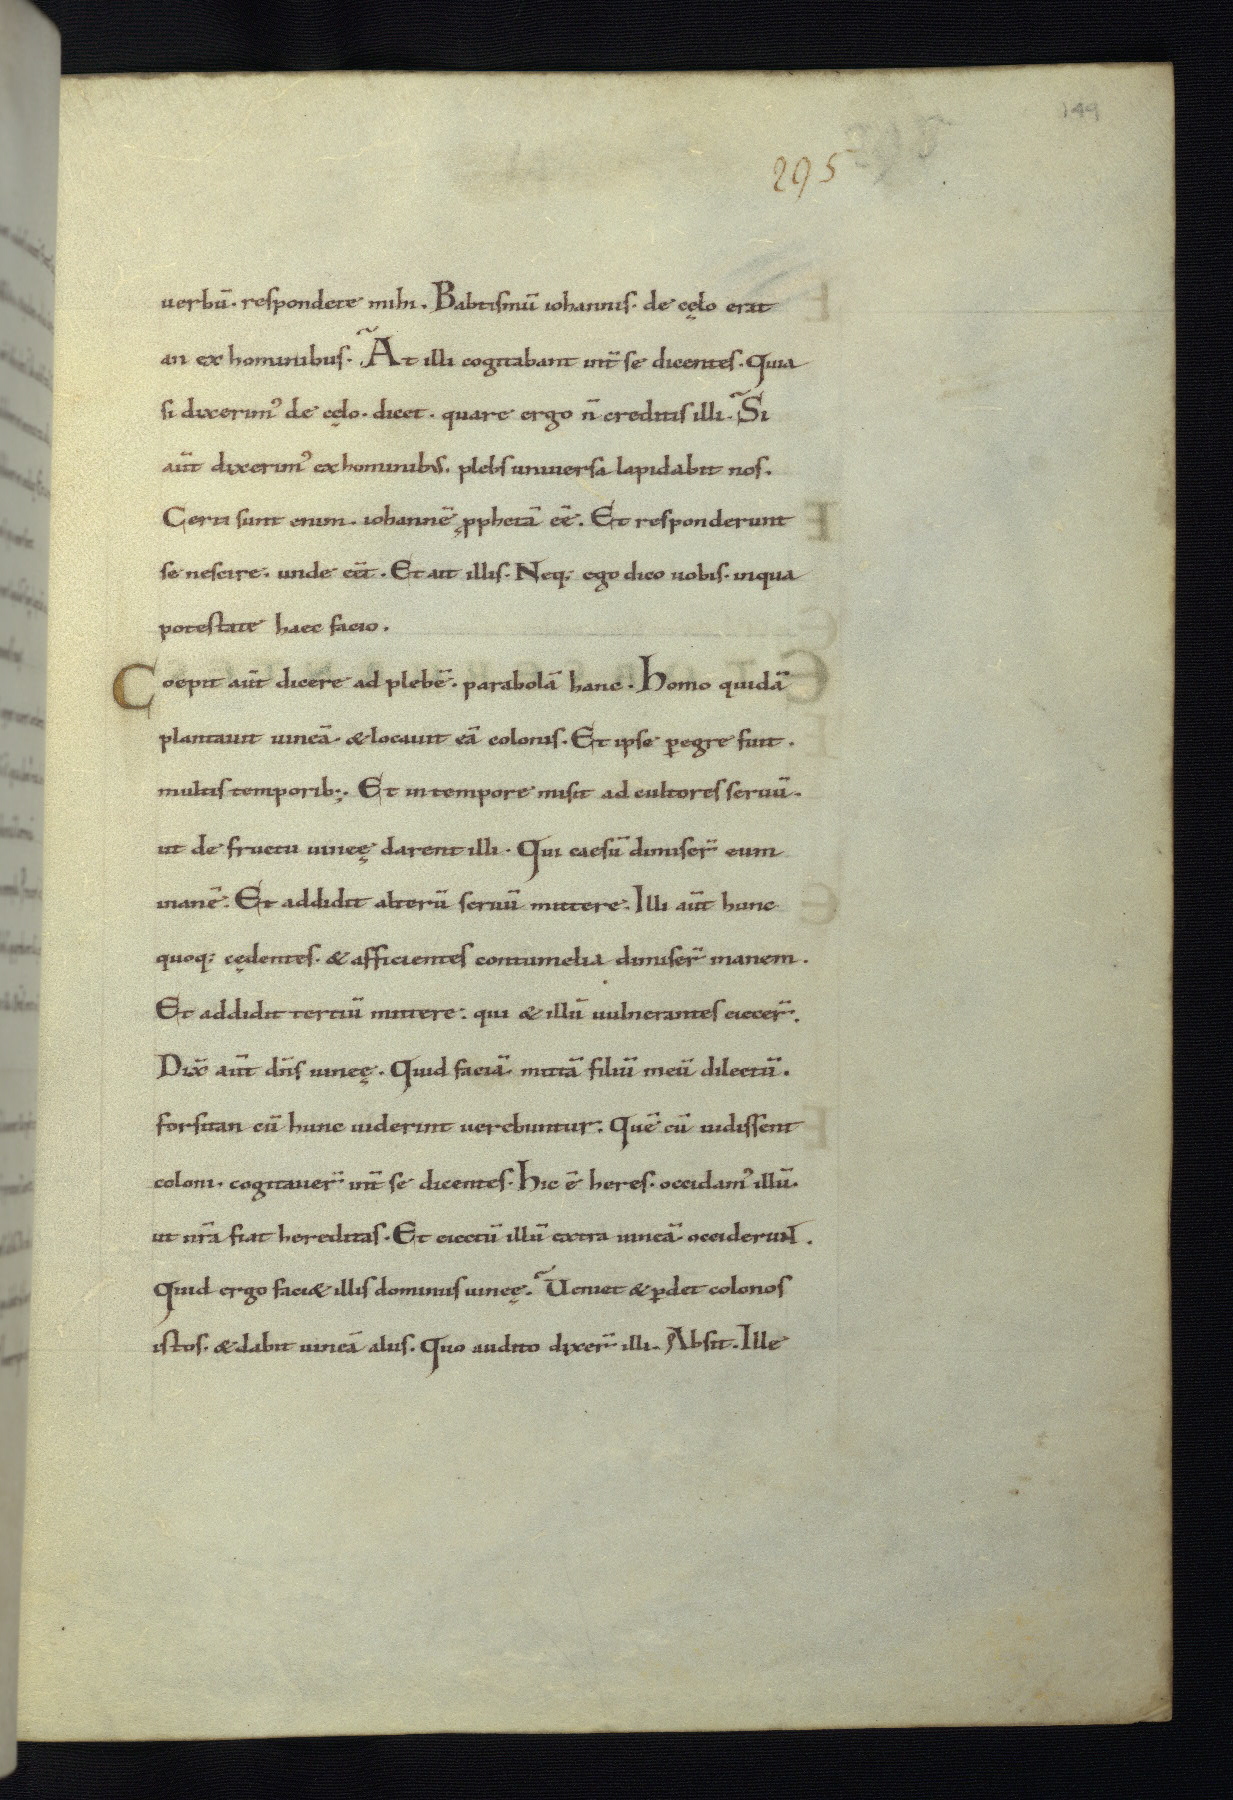 149
295
uerbū. respondete mihi. Babtismū iohannis. de cęlo erat
an ex hominibus. At illi cogitabant int̄ se dicentes. Quia
si dixerimꝰ de cęlo. dicet. quare ergo n̄ creditis illi. Si
aūt dixerimꝰ ex hominibus. plebs uniuersa lapidabit nos.
Certi sunt enim. iohannē ꝓphetā eē. Et responderunt
se nescire. unde eēt. Et ait illis. Neq; ego dico uobis. in qua
potestate haec facio.
Coepit aūt dicere ad plebē. parabolā hanc. Homo quidā
plantauit uineā. & locauit eā colonis. Et ipse ꝑegre fuit.
multis temporib;. Et in tempore misit ad cultores seruū.
ut de fructu uineę darent illi. Qui caesū dimiser̄ eum
inanē. Et addidit alterū seruū mittere. Illi aūt hunc
quoq; cędentes. & afficientes contumelia dimiser̄ inanem.
Et addidit tertiū mittere. qui & illū uulnerantes eiecer̄.
Dix̄ aūt dn̄s uineę. Quid faciā. mittā filiū meū dilectū.
forsitan cū hunc uiderint uerebuntur. Quē cū uidissent
coloni. cogitauer̄ int̄ se dicentes. Hic ē heres. occidamꝰ illū.
ut nr̄a fiat hereditas. Et eiectū illū extra uineā. occiderunt.
Quid ergo faci& illis dominus uineę. Ueniet & ꝑdet colonos
istos. & dabit uineā aliis. Quo audito dixer̄ illi. Absit. Ille